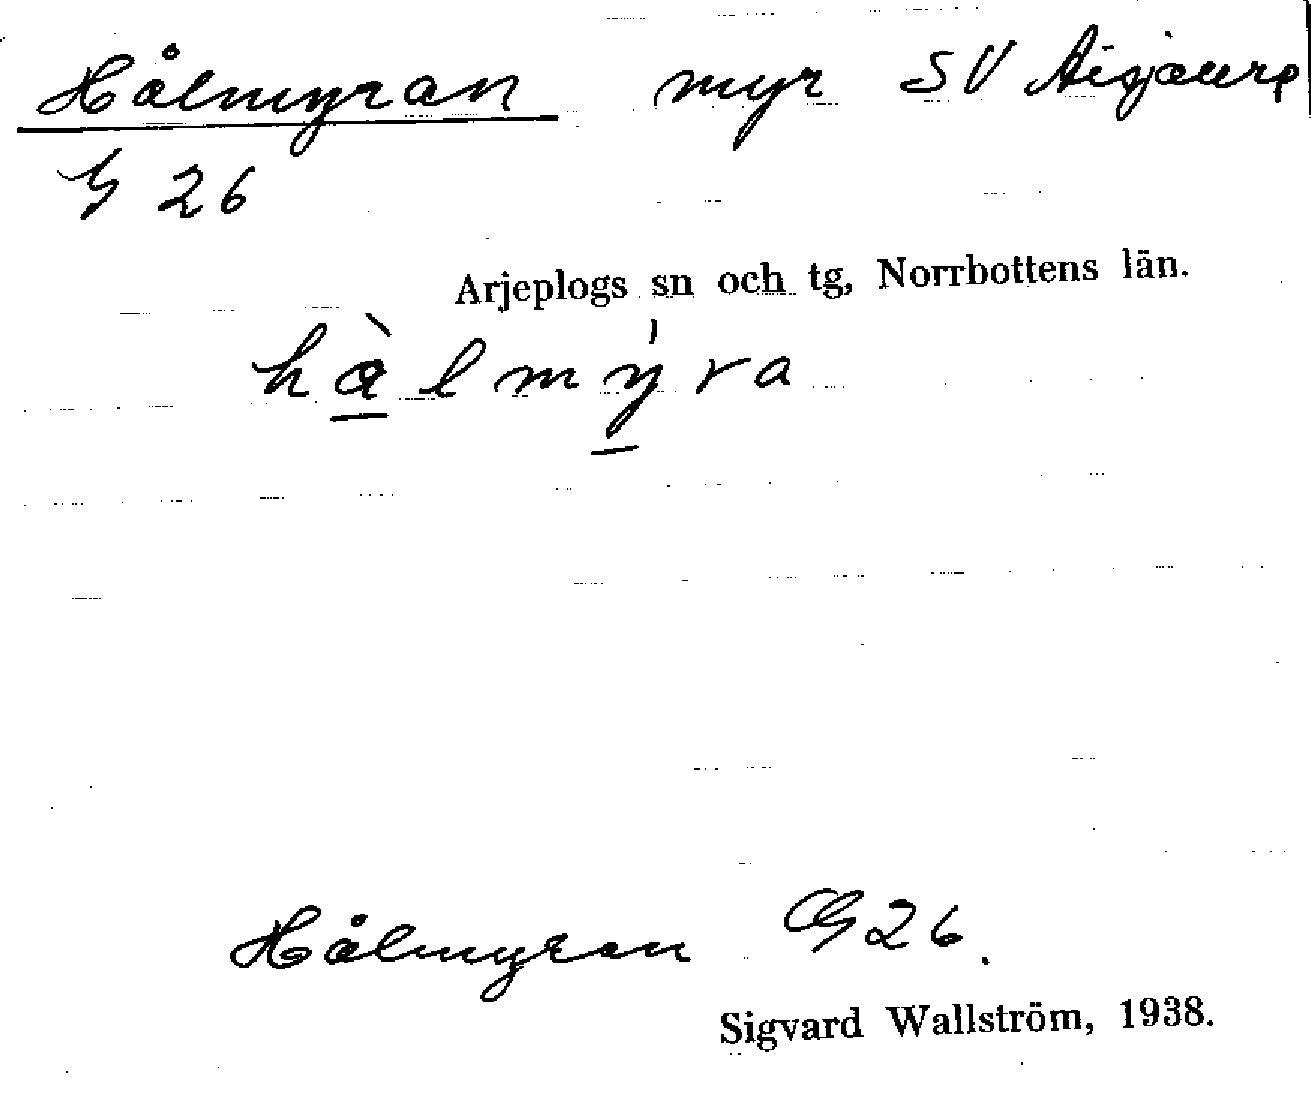 Hålmyran myr SV Aisjaure
G 26
Arjeplogs sn och tg, Norrbottens län.
hàlmýra
Hålmyran G 26.
Sigvard Wallström, 1938.